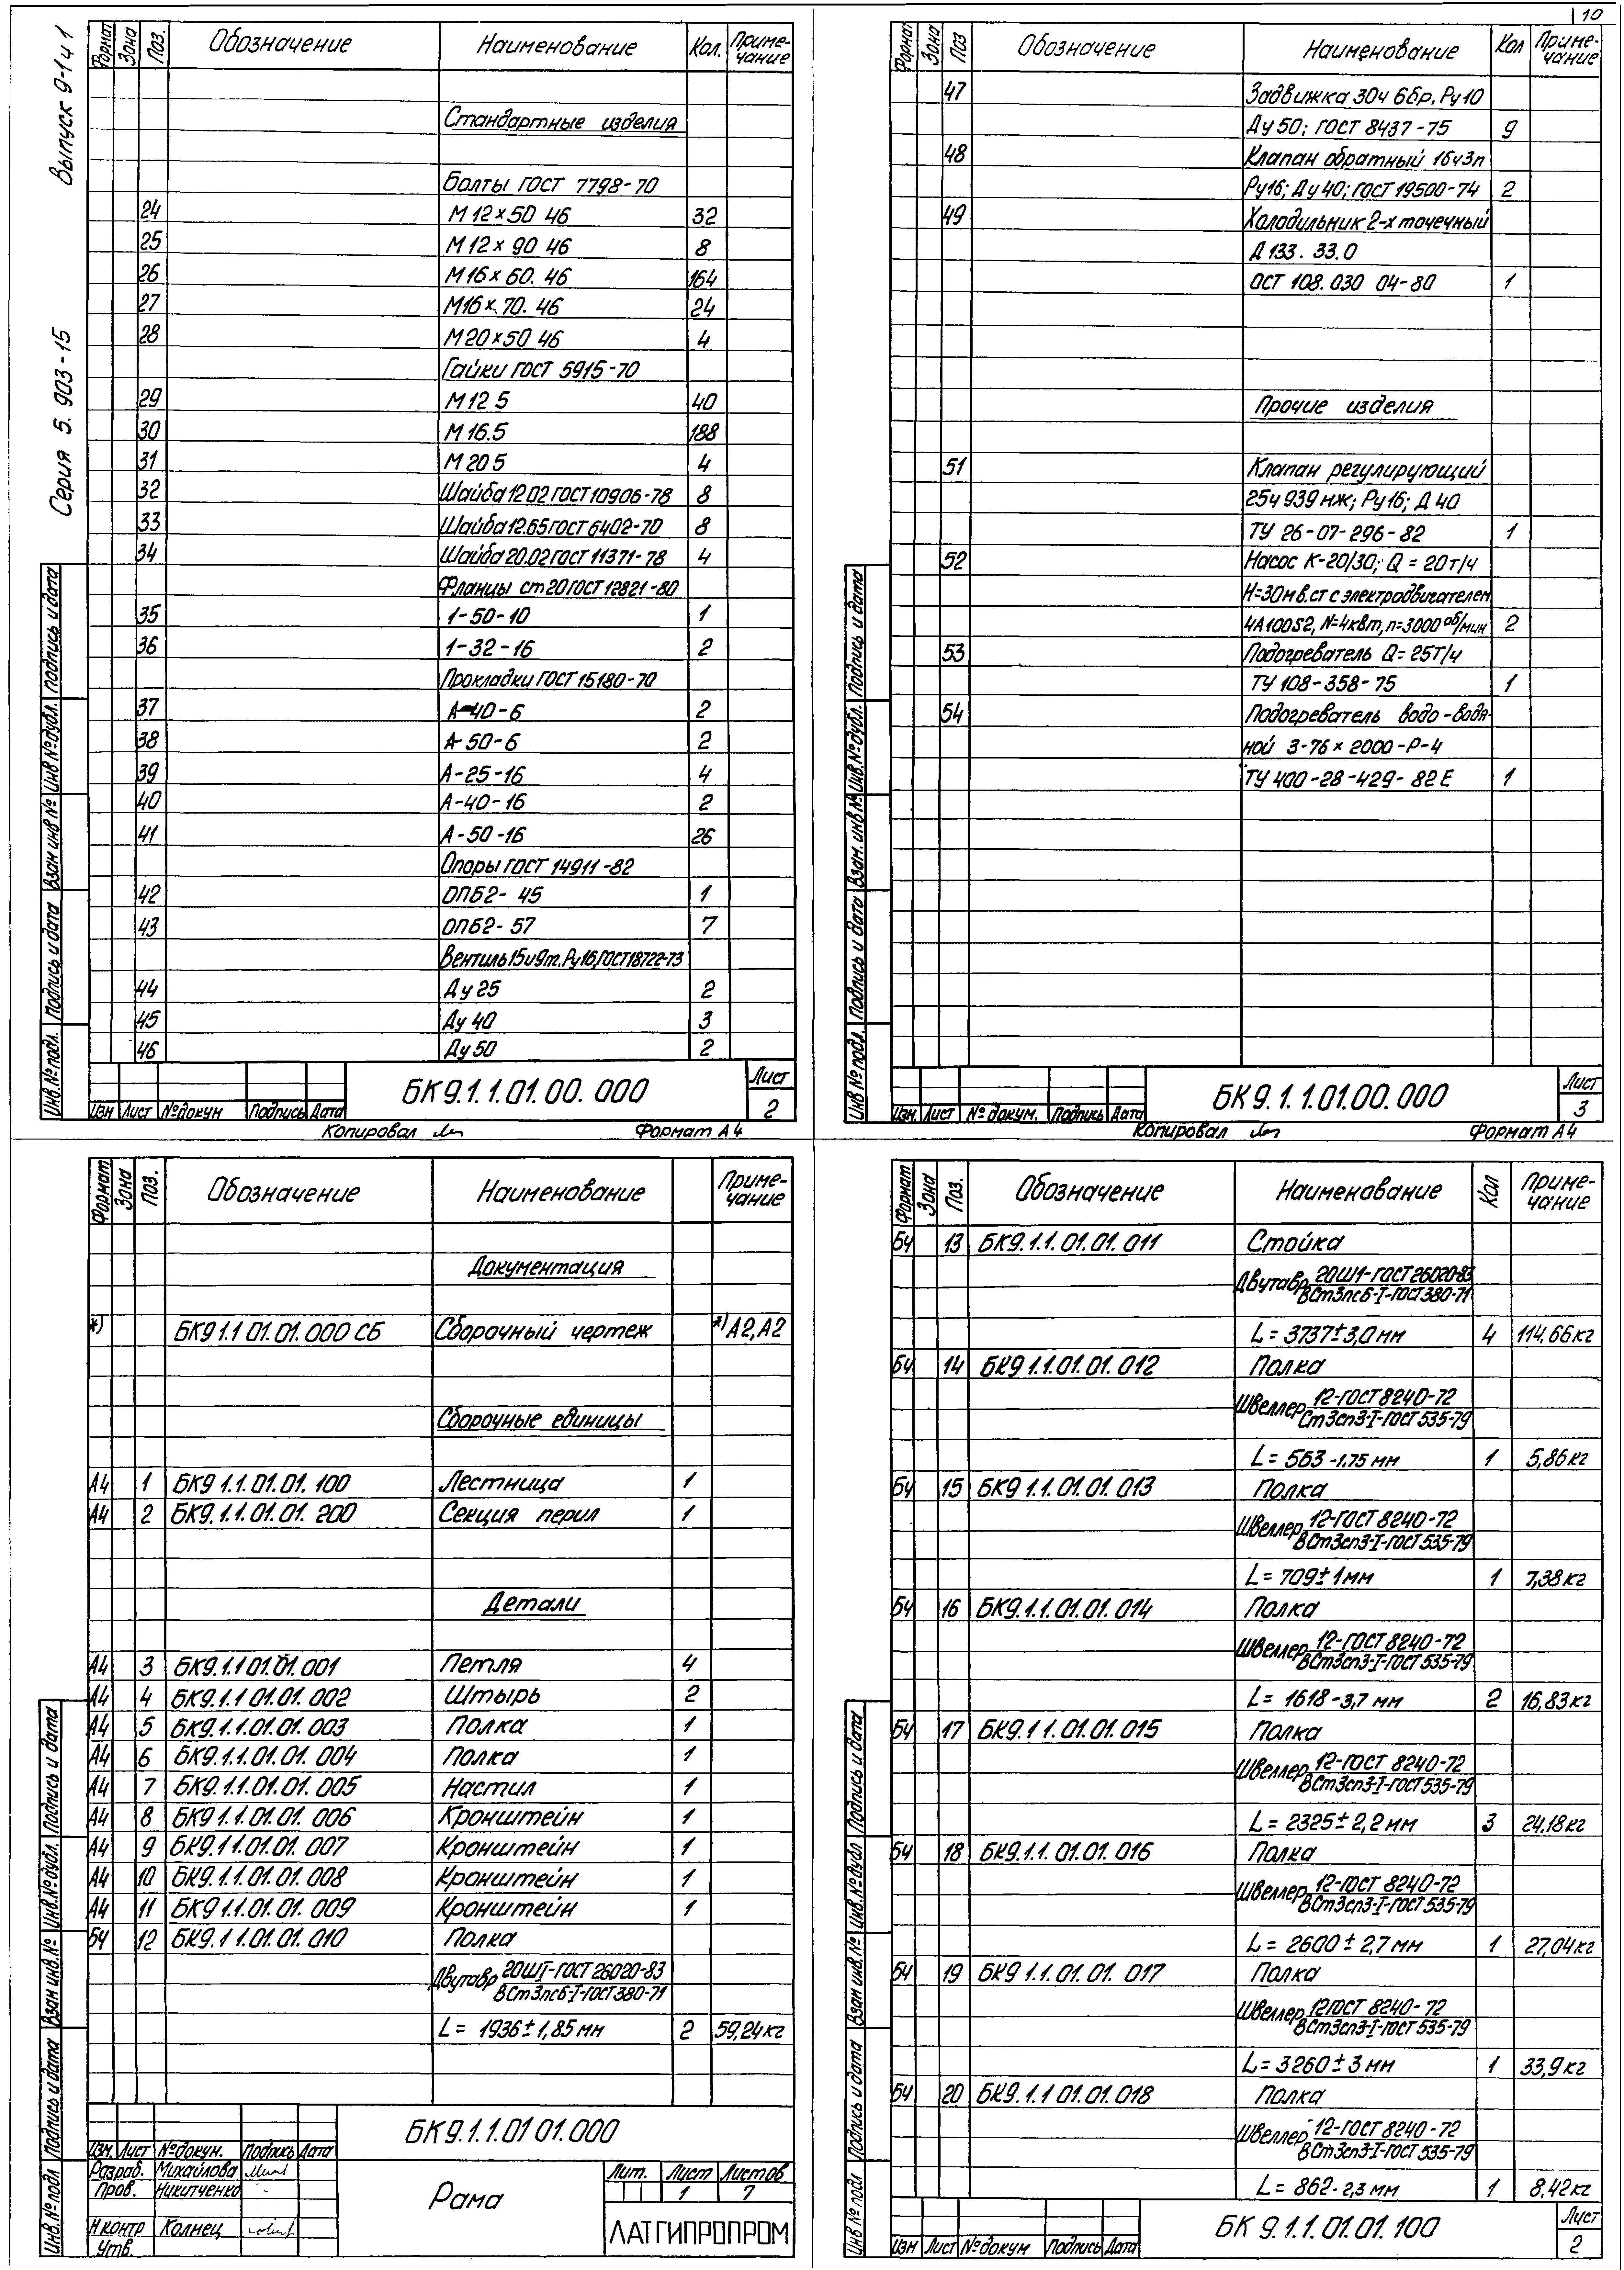 10
Выпуск 9-1 ч 1
Серия 5.903-15
Формат Зона Поз. Обозначение Наименование Кол. Примечание
Стандартные изделия
Болты ГОСТ 7798-70
24 М12×50 46 32
25 М12×90 46 8
26 М16×60.46 164
27 М16×70.46 24
28 М20×50 46 4
Гайки ГОСТ 5915-70
29 М12 5 40
30 М16.5 188
31 М20 5 4
32 Шайба 12 02 ГОСТ 10906-78 8
33 Шайба 12.65 ГОСТ 6402-70 8
34 Шайба 20.02 ГОСТ 11371-78 4
Фланцы ст 20 ГОСТ 12821-80
35 1-50-10 1
36 1-32-16 2
Прокладки ГОСТ 15180-70
37 А-40-6 2
38 А-50-6 2
39 А-25-16 4
40 А-40-16 2
41 А-50-16 26
Опоры ГОСТ 14911-82
42 ОПБ2-45 1
43 ОПБ2-57 7
Вентиль 15и9т, Ру16, ГОСТ 18722-73
44 Ду 25 2
45 Ду 40 3
46 Ду 50 2
Инв.№ подл. Подпись и дата Взам инв № Инв № дубл. Подпись и дата
Изм Лист № докум Подпись Дата
БК9.1.1.01.00.000
Лист 2
Копировал
Формат А4
Формат Зона Поз Обозначение Наименование Кол Примечание
47 Задвижка 30ч 6бр, Ру10
Ду 50; ГОСТ 8437-75 9
48 Клапан обратный 16ч3п
Ру16; Ду 40; ГОСТ 19500-74 2
49 Холодильник 2-х точечный
Д 133.33.0
ОСТ 108.030 04-80 1
Прочие изделия
51 Клапан регулирующий
25ч 939 нж; Ру16; Д 40
ТУ 26-07-296-82 1
52 Насос К-20/30; Q = 20т/ч
Н=30м в.ст с электродвигателем
4А100S2, N=4квт, n=3000 об/мин 2
53 Подогреватель Q=25т/ч
ТУ 108-358-75 1
54 Подогреватель водо-водя-
ной 3-76×2000-Р-4
ТУ 400-28-429-82Е 1
Инв № подл. Подпись и дата Взам. инв № Инв.№ дубл. Подпись и дата
Изм. Лист № докум. Подпись Дата
БК9.1.1.01.00.000
Лист 3
Копировал
Формат А4
Формат Зона Поз. Обозначение Наименование Примечание
Документация
*) БК9 1.1 01.01.000 СБ Сборочный чертеж *) А2, А2
Сборочные единицы
А4 1 БК9 1.1.01.01.100 Лестница 1
А4 2 БК9.1.1.01.01.200 Секция перил 1
Детали
А4 3 БК9.1.1 01.01.001 Петля 4
А4 4 БК9.1.1 01.01.002 Штырь 2
А4 5 БК9.1.1.01.01.003 Полка 1
А4 6 БК9.1.1.01.01.004 Полка 1
А4 7 БК9.1.1.01.01.005 Настил 1
А4 8 БК9 1.1.01.01.006 Кронштейн 1
А4 9 БК9.1 1.01.01.007 Кронштейн 1
А4 10 БК9.1.1.01.01.008 Кронштейн 1
А4 11 БК9.1.1.01.01.009 Кронштейн 1
БЧ 12 БК9.1 1.01.01.010 Полка
Двутавр 20Ш1-ГОСТ 26020-83
ВСт3пс6-I-ГОСТ 380-71
L = 1936 ± 1,85 мм 2 59,24 кг
Инв.№ подл Подпись и дата Взам инв.№ Инв.№ дубл. Подпись и дата
Изм. Лист № докум. Подпись Дата
БК9.1.1.01 01.000
Разраб. Михайлова
Пров. Никитченко
Н контр Колнец
Утв.
Рама
Лит. Лист Листов
1 7
ЛАТГИПРОПРОМ
Формат Зона Поз. Обозначение Наименование Кол Примечание
БЧ 13 БК9.1.1.01.01.011 Стойка
Двутавр 20Ш1-ГОСТ 26020-83
ВСт3пс6-I-ГОСТ 380-71
L = 3737±3,0 мм 4 114,66 кг
БЧ 14 БК9 1.1.01.01.012 Полка
Швеллер 12-ГОСТ 8240-72
Ст3сп3-I-ГОСТ 535-79
L = 563 -1.75 мм 1 5,86 кг
БЧ 15 БК9 1.1.01.01.013 Полка
Швеллер 12-ГОСТ 8240-72
ВСт3сп3-I-ГОСТ 535-79
L = 709±1 мм 1 7,38 кг
БЧ 16 БК9.1.1.01.01.014 Полка
Швеллер 12-ГОСТ 8240-72
ВСт3сп3-I-ГОСТ 535-79
L = 1618 -3,7 мм 2 16,83 кг
БЧ 17 БК9.1 1.01.01.015 Полка
Швеллер 12-ГОСТ 8240-72
ВСт3сп3-I-ГОСТ 535-79
L = 2325 ± 2,2 мм 3 24,18 кг
БЧ 18 БК9.1.1.01.01.016 Полка
Швеллер 12-ГОСТ 8240-72
ВСт3сп3-I-ГОСТ 535-79
L = 2600 ± 2,7 мм 1 27,04 кг
БЧ 19 БК9 1.1.01.01.017 Полка
Швеллер 12 ГОСТ 8240-72
ВСт3сп3-I-ГОСТ 535-79
L = 3260 ± 3 мм 1 33,9 кг
БЧ 20 БК9.1.1 01.01.018 Полка
Швеллер 12-ГОСТ 8240-72
ВСт3сп3-I-ГОСТ 535-79
L = 862 -2,3 мм 1 8,42 кг
Инв № подл Подпись и дата Взам инв.№ Инв.№ дубл Подпись и дата
Изм Лист № докум Подпись Дата
БК 9.1.1.01.01.100
Лист 2